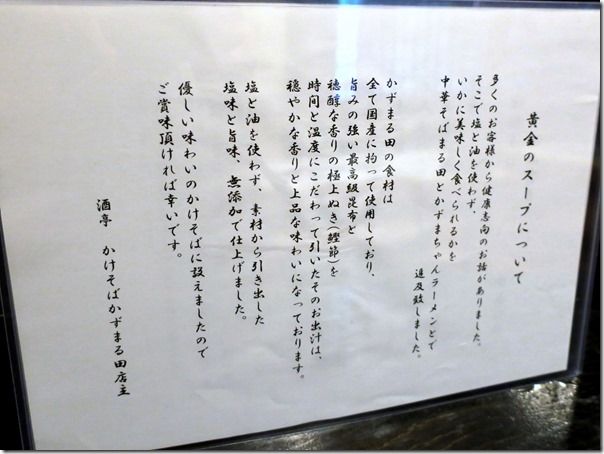 黄金のスープについて
多くのお客様から健康志向のお話がありました。
そこで塩と油を使わず、
いかに美味しく食べられるかを
中華そばまる田とかずまちゃんラーメンとで
追及致しました。
かずまる田の食材は
全て国産に拘って使用しており、
旨みの強い最高級昆布と
穏醇な香りの極上ぬき(鰹節)を
時間と温度にこだわって引いたそのお出汁は、
穏やかな香りと上品な味わいになっております。
塩と油を使わず、素材から引き出した
塩味と旨味、無添加で仕上げました。
優しい味わいのかけそばに設えましたので
ご賞味頂ければ幸いです。
酒亭 かけそばかずまる田店主